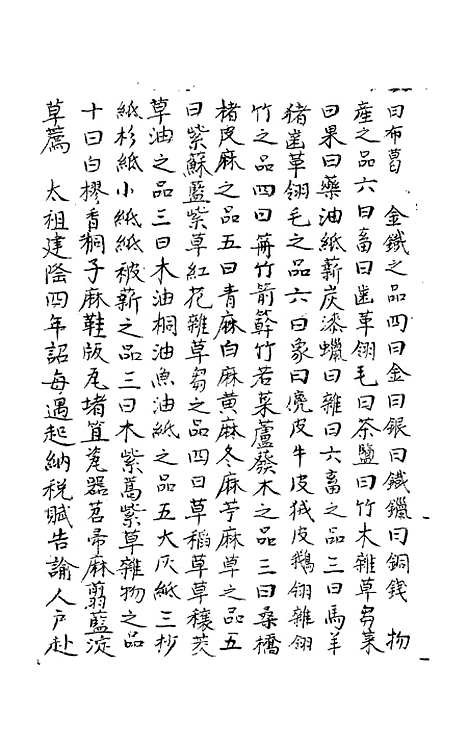 曰布葛 金鐵之品四曰金曰銀曰鐵鑞曰銅錢 物
產之品六曰畜曰齒革翎毛曰茶鹽曰竹木雜草芻茱
曰果曰藥油紙薪炭漆蠟曰雜曰六畜之品三曰馬羊
猪齒革翎毛之品六曰象曰麂皮牛皮狨皮鵝翎雜翎
竹之品四曰䈽竹箭簳竹若菜蘆䕠木之品三曰桑橋
楮皮麻之品五曰青麻白麻黄麻冬麻苧麻草之品五
曰紫蘇藍紫草紅花雜草芻之品四曰草稻草草穰茭
草油之品三曰木油桐油魚油紙之品五大灰紙三抄
紙杉紙小紙紙被薪之品三曰木紫蒿紫草雜物之品
十曰白膠香桐子麻鞋版瓦堵笪瓷器苕帚麻翦藍淀
草薦 太祖建隆四年詔每遇起納税賦告諭人户赴